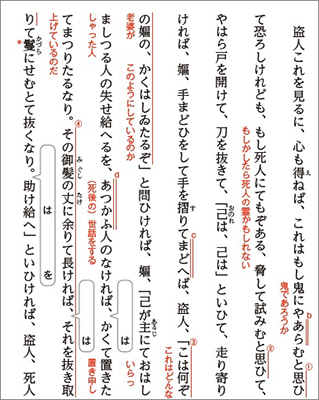 盗人これを見るに、心も得ねば、これはもし鬼にやあらむと思ひ
え
b
①
鬼であろうか
て恐ろしけれども、もし死人にてもぞある、脅して試みむと思ひて、
②
もしかしたら死人の霊かもしれない
やはら戸を開けて、刀を抜きて、「己は、己は」といひて、走り寄り
おのれ
ければ、嫗、手まどひをして手を摺りてまどへば、盗人、「こは何ぞ
す
c
は
これはどんな
の嫗の、かくはしゐたるぞ」と問ひければ、嫗、「己が主にておはし
あるじ
老婆が
このようにしているのか
いらっ
ましつる人の失せ給へるを、あつかふ人のなければ、かくて置きた
d
しゃった人
（死後の）世話をする
は
置き申し
てまつりたるなり。その御髪の丈に余りて長ければ、それを抜き取
④
みぐし
たけ
上げているのだ
は
りて鬘にせむとて抜くなり。助け給へ」といひければ、盗人、死人
かづら
*
は
を